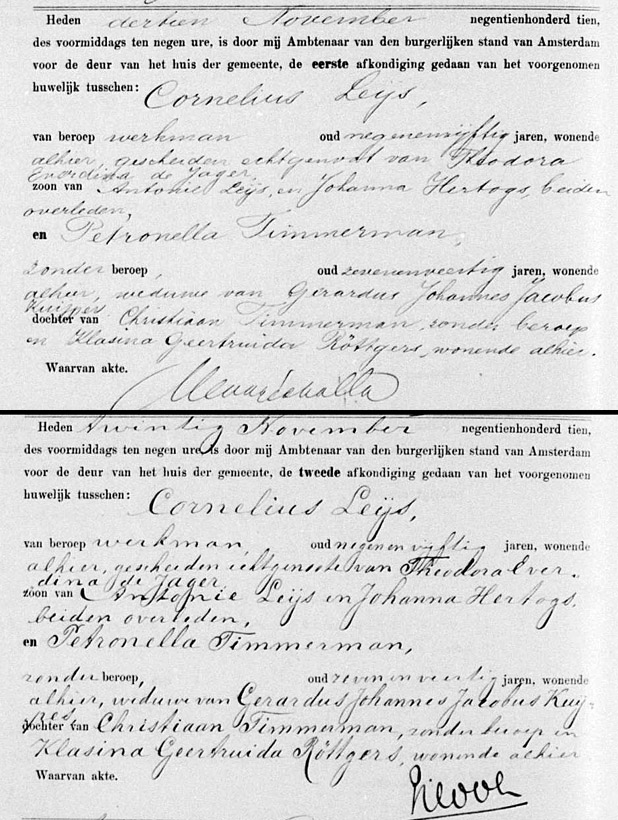 Heden dertien November negentienhonderd tien,
des voormiddags ten negen ure, is door mij Ambtenaar van den burgerlijken stand van Amsterdam
voor de deur van het huis der gemeente, de eerste afkondiging gedaan van het voorgenomen
huwelijk tusschen: Cornelius Leijs,
van beroep werkman oud negenenvijftig jaren, wonende
alhier, gescheiden echtgenoot van Theodora
Everdina de Jager,
zoon van Antonie Leijs, en Johanna Hertogs, beiden
overleden,
en Petronella Timmerman,
zonder beroep, oud zevenenveertig jaren, wonende
alhier, weduwe van Gerardus Johannes Jacobus
Kuijpers
dochter van Christiaan Timmerman, zonder beroep
en Klasina Geertruida Röttgers, wonende alhier.
Waarvan akte.
Heden twintig November negentienhonderd tien,
des voormiddags ten negen ure, is door mij Ambtenaar van den burgerlijken stand van Amsterdam
voor de deur van het huis der gemeente, de tweede afkondiging gedaan van het voorgenomen
huwelijk tusschen: Cornelius Leijs,
van beroep werkman, oud negenenvijftig jaren, wonende
alhier, gescheiden echtgenoote van Theodora Ever-
dina de Jager,
zoon van Antonie Leijs en Johanna Hertogs,
beiden overleden,
en Petronella Timmerman,
zonder beroep, oud zevenenveertig jaren, wonende
alhier, weduwe van Gerardus Johannes Jacobus Kuij-
pers,
dochter van Christiaan Timmerman, zonder beroep en
Klasina Geertruida Röttgers, wonende alhier
Waarvan akte.